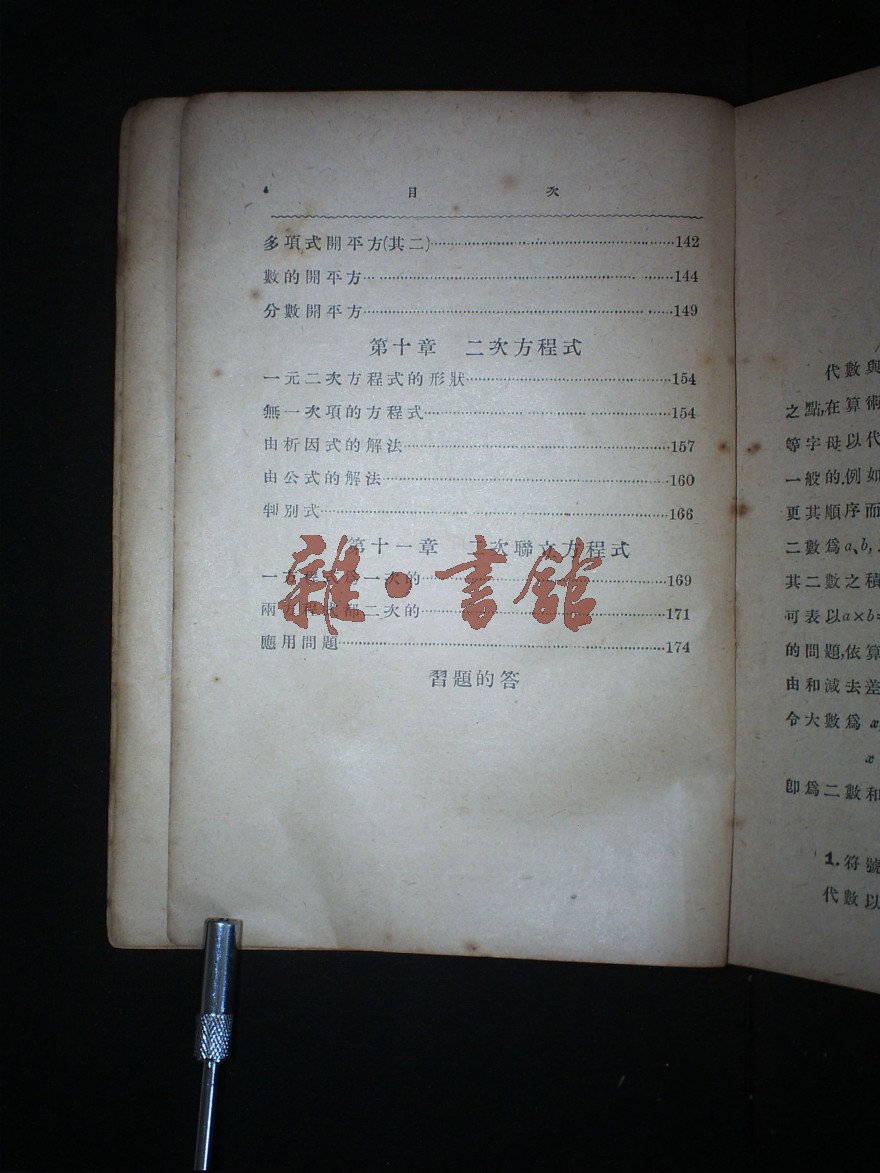 4 目 次
多項式開平方(其二)……142
數的開平方……144
分數開平方……149
第十章 二次方程式
一元二次方程式的形狀……154
無一次項的方程式……154
由析因式的解法……157
由公式的解法……160
判別式……166
第十一章 二次聯立方程式
一方程式 一次的……169
兩方程式都二次的……171
應用問題……174
習題的答
雜·書館
代數與
之點,在算術
等字母以代
一般的.例如
更其順序而
二數爲a、b,
其二數之積
可表以a×b=
的問題,依算
由和減去差
令大數爲 x
x
卽爲二數和
1.符號
代數以